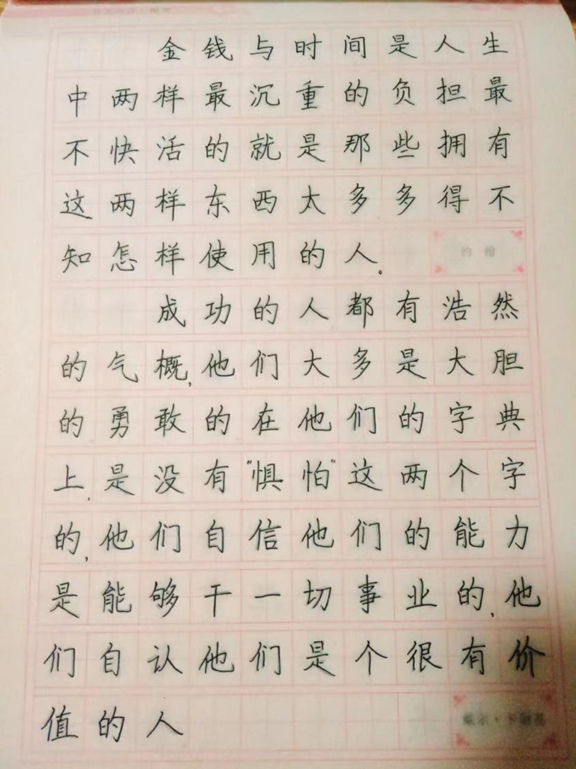 金钱与时间是人生
中两样最沉重的负担最
不快活的就是那些拥有
这两样东西太多多得不
知怎样使用的人。
成功的人都有浩然
的气概,他们大多是大胆
的勇敢的在他们的字典
上,是没有"惧怕"这两个字
的,他们自信他们的能力
是能够干一切事业的,他
们自认他们是个很有价
值的人